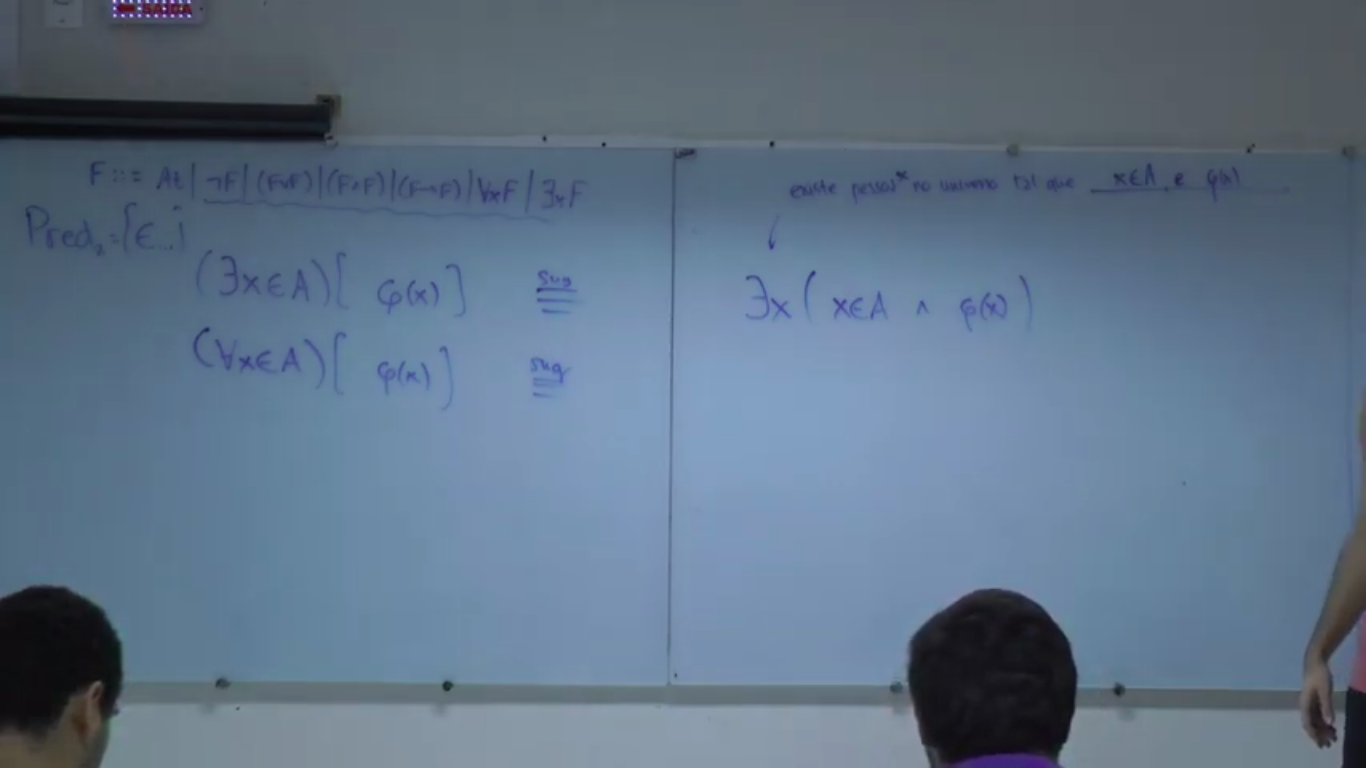 SAÍDA
F ::= At | ¬F | (F∨F) | (F∧F) | (F→F) | ∀xF | ∃xF
Pred₂ = {∈...}
(∃x∈A)[ φ(x) ] sug ≡
(∀x∈A)[ φ(x) ] sug ≡
existe pessoa x no universo tal que x∈A e φ(x)
↓
∃x( x∈A ∧ φ(x) )